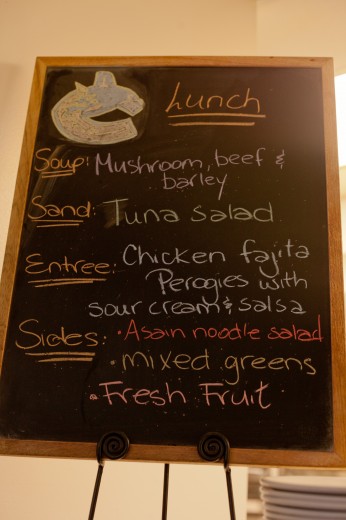 Lunch
Soup: Mushroom, beef &
barley
Sand: Tuna Salad
Entree: Chicken fajita
Perogies with
sour cream & salsa
Sides: • Asain noodle salad
• mixed greens
• Fresh Fruit